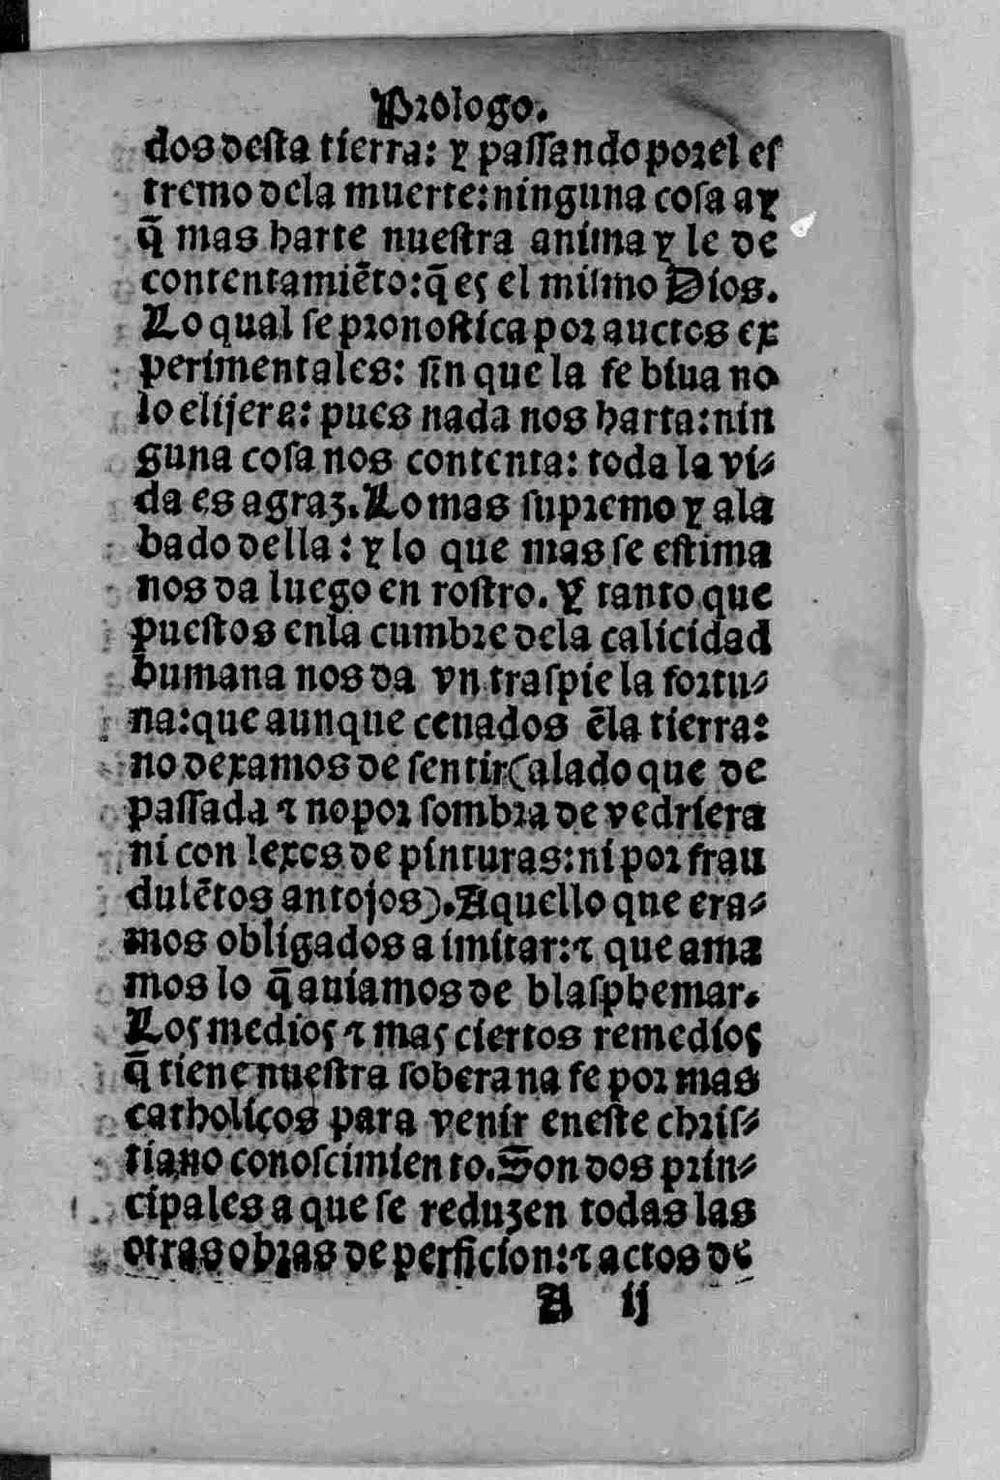 Prologo.
dos desta tierra: y passando porel es
tremo dela muerte: ninguna cosa ay
q̃ mas harte nuestra anima y le de
contentamiẽto: q̃ es el mismo Dios.
Lo qual se pronostica por auctos ex
perimentales: sin que la fe biua no
lo elijera: pues nada nos harta: nin
guna cosa nos contenta: toda la vi-
da es agraz. Lo mas supremo y ala
bado della: y lo que mas se estima
nos da luego en rostro. Y tanto que
puestos enla cumbre dela calicidad
humana nos da vn traspie la fortu-
na: que aunque cenados ẽla tierra:
no dexamos de sentir (alado que de
passada ⁊ no por sombra de vedriera
ni con lexos de pinturas: ni por frau
dulẽtos antojos). Aquello que era-
mos obligados a imitar: ⁊ que ama
mos lo q̃ auiamos de blasphemar.
Los medios ⁊ mas ciertos remedios
q̃ tiene nuestra soberana fe por mas
catholicos para venir eneste chris-
tiano conoscimiento. Son dos prin-
cipales a que se reduzen todas las
otras obras de perficion: ⁊ actos de
A ij